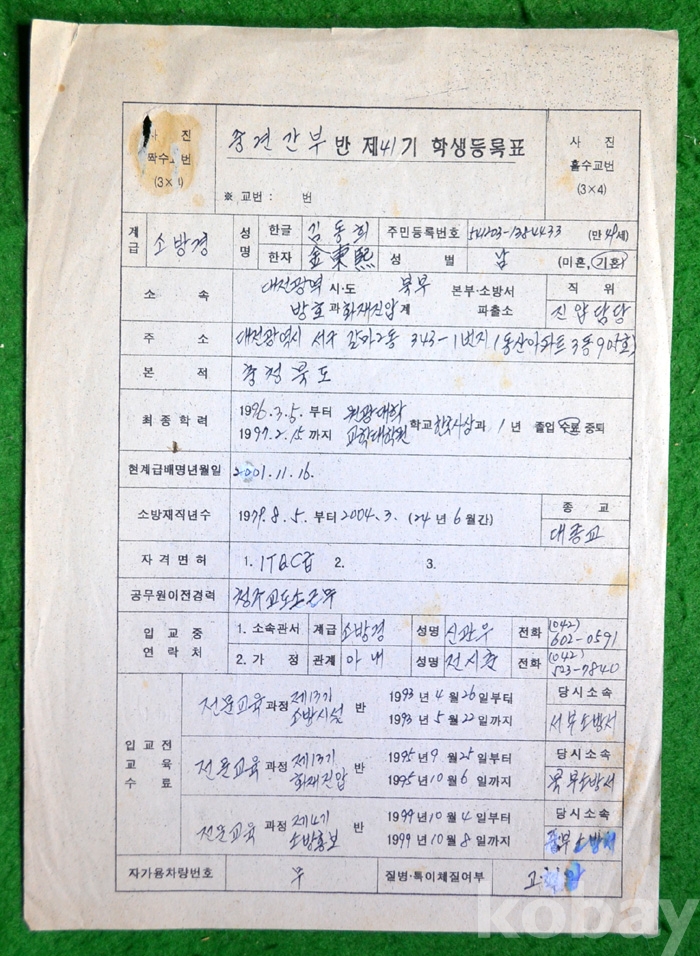 사 진
짝수교번
중견간부 반 제41기 학생등록표
※ 교번 : 번
사 진
홀수교번
(3×4)
계급 소방경 성명 한글 김동희 주민등록번호 (만 49세)
한자 金東熙 성 별 남 (미혼, 기혼)
소 속 대전광역 시·도 북부 본부·소방서 직 위
방호 과 화재진압 계 파출소 진압담당
주 소 대전광역시 서구 갈마2동 343-1번지 (동산아파트 3동 호)
본 적 충청북도
최종학력 1996.3.5. 부터 원광대학
1997.2.15 까지 교학대학원 학교 한국사상 과 1 년 졸업 수료 중퇴
현계급배명년월일 2001.11.16.
소방재직년수 1979.8.5. 부터 2004.3. (24 년 6 월간) 종 교
대종교
자격면허 1. ITQC급 2. 3.
공무원이전경력 청주교도소근무
입교중 연락처 1. 소속관서 계급 소방경 성명 신관우 전화 (042) 602-0591
2. 가 정 관계 아내 성명 전화 (042) 523-7840
입교전 교육 수료
전문교육 과정 제13기 소방시설 반 1993 년 4 월 26 일부터 당시소속
1993 년 5 월 22 일까지 서부소방서
전문교육 과정 제13기 화재진압 반 1995 년 9 월 25 일부터 당시소속
1995 년 10 월 6 일까지 북부소방서
전문교육 과정 제4기 소방홍보 반 1999 년 10 월 4 일부터 당시소속
1999 년 10 월 8 일까지 소방서
자가용차량번호 무 질병·특이체질여부
kobay